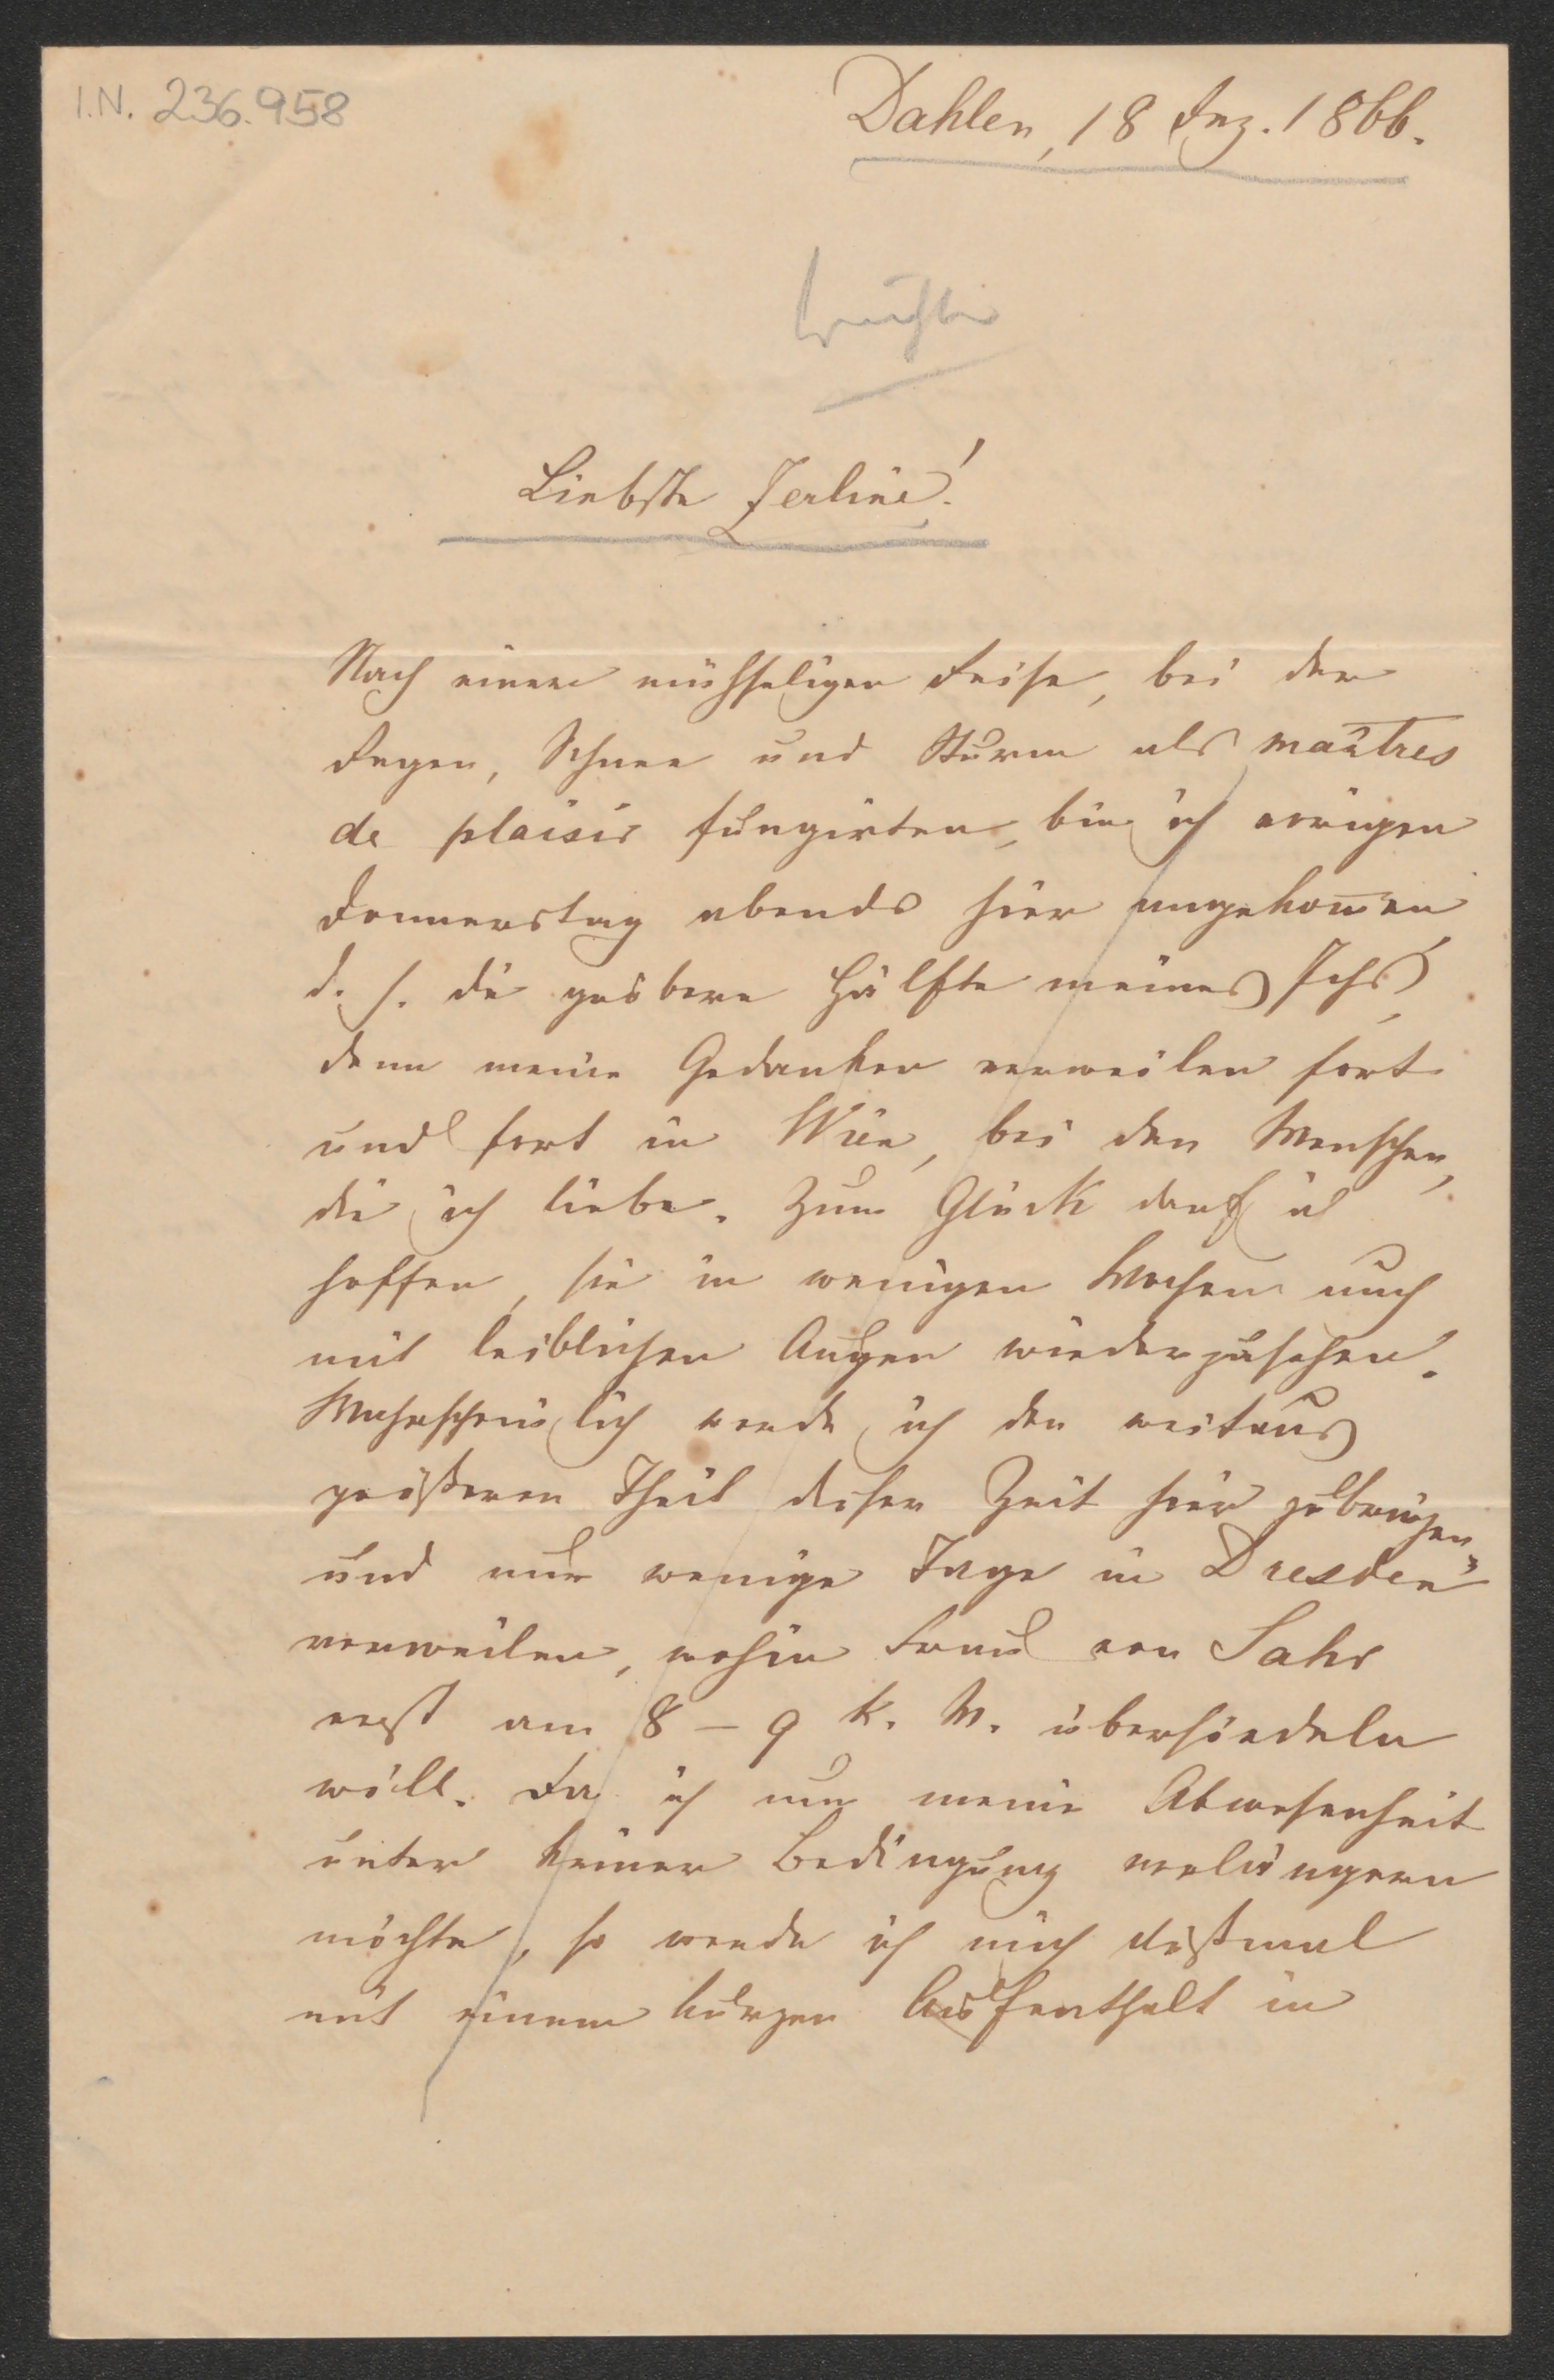 I.N. 236.958
Dahlen, 18 Dez. 1866.
Liebste Zerline!
Nach einer mühseligen Reise, bei der
Regen, Schnee und Sturm als maîtres
de plaisir fungirten, bin ich vorigen
Donnerstag abends hier angekom̅en
d. h. die gröbere Hälfte meines Ichs,
denn meine Gedanken verweilen fort
und fort in Wien, bei den Menschen,
die ich liebe. Zum Glück darf ich
hoffen, sie in wenigen Wochen auch
mit leiblichen Augen wiederzusehen.
Wahrscheinlich werde ich den weitaus
größeren Theil dieser Zeit hier zubringen
und nur wenige Tage in Dresden
verweilen, wohin Frau von Sahr
erst am 8 – 9 k. M. übersiedeln
will. Da ich nun meine Abwesenheit
unter keiner Bedingung verlängern
möchte, so werde ich mich dießmal
mit einem kurzen Aufenthalt in